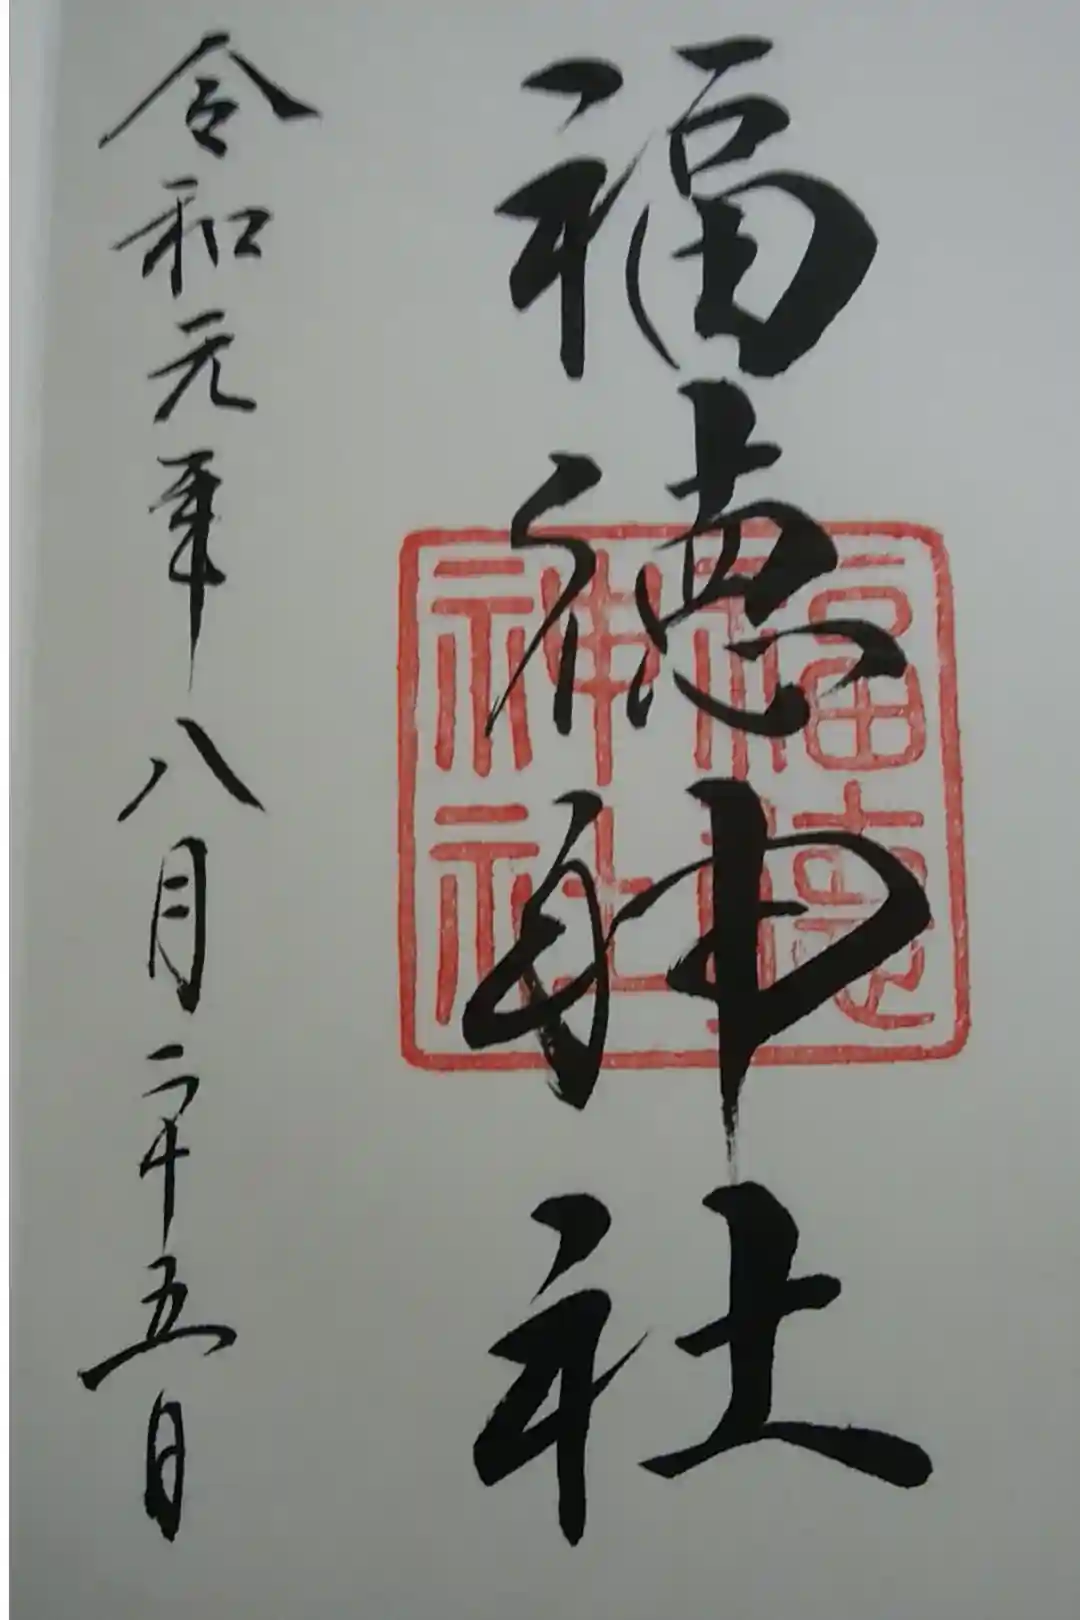 福徳神社
福徳
神社
令和元年八月二十五日